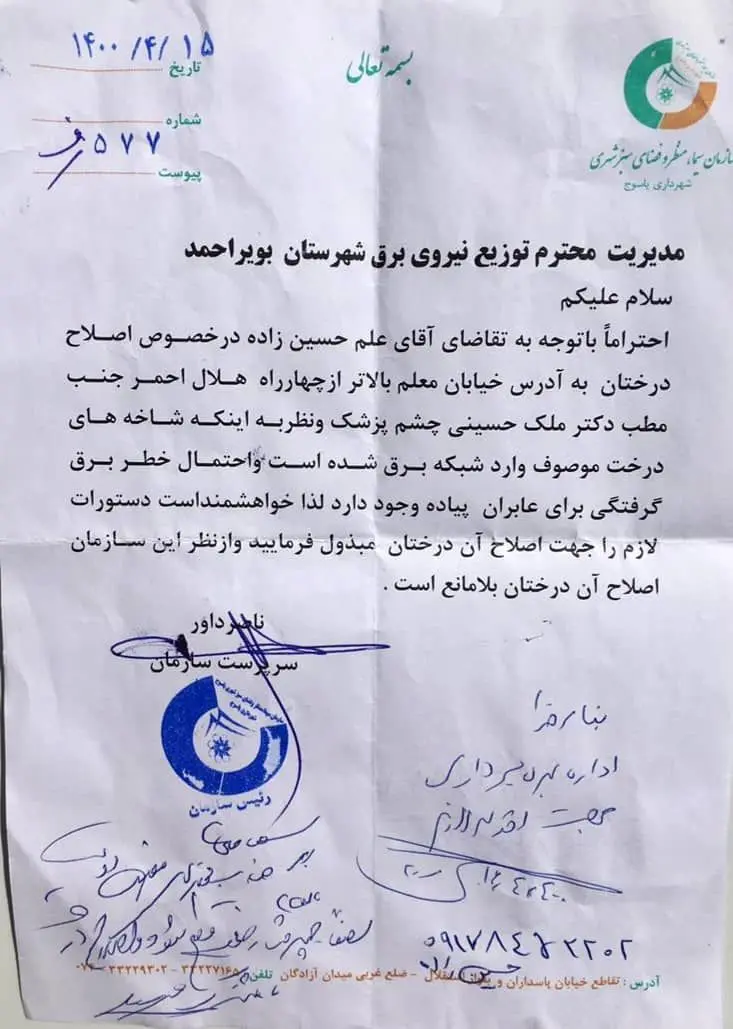 بسمه تعالی
تاریخ ۱۴۰۰/۴/۱۵
شماره
۵۷۷
پیوست
سازمان سیما، منظر و فضای سبز شهری
شهرداری یاسوج
مدیریت محترم توزیع نیروی برق شهرستان بویراحمد
سلام علیکم
احتراماً باتوجه به تقاضای آقای علم حسین زاده درخصوص اصلاح
درختان به آدرس خیابان معلم بالاتر ازچهارراه هلال احمر جنب
مطب دکتر ملک حسینی چشم پزشک ونظربه اینکه شاخه های
درخت موصوف وارد شبکه برق شده است واحتمال خطر برق
گرفتگی برای عابران پیاده وجود دارد لذا خواهشمنداست دستورات
لازم را جهت اصلاح آن درختان مبذول فرمایید وازنظر این سازمان
اصلاح آن درختان بلامانع است .
ناصرداور
سرپرست سازمان
رئیس سازمان
اداره بهره برداری
جهت اقدام لازم
۰۹۱۷۸۴۵۳۲۰۲
آدرس : تقاطع خیابان پاسداران و بلوار استقلال - ضلع غربی میدان آزادگان تلفن: ۳۳۲۲۷۱۶۵ - ۳۳۲۲۹۳۰۲ - ۰۷۴